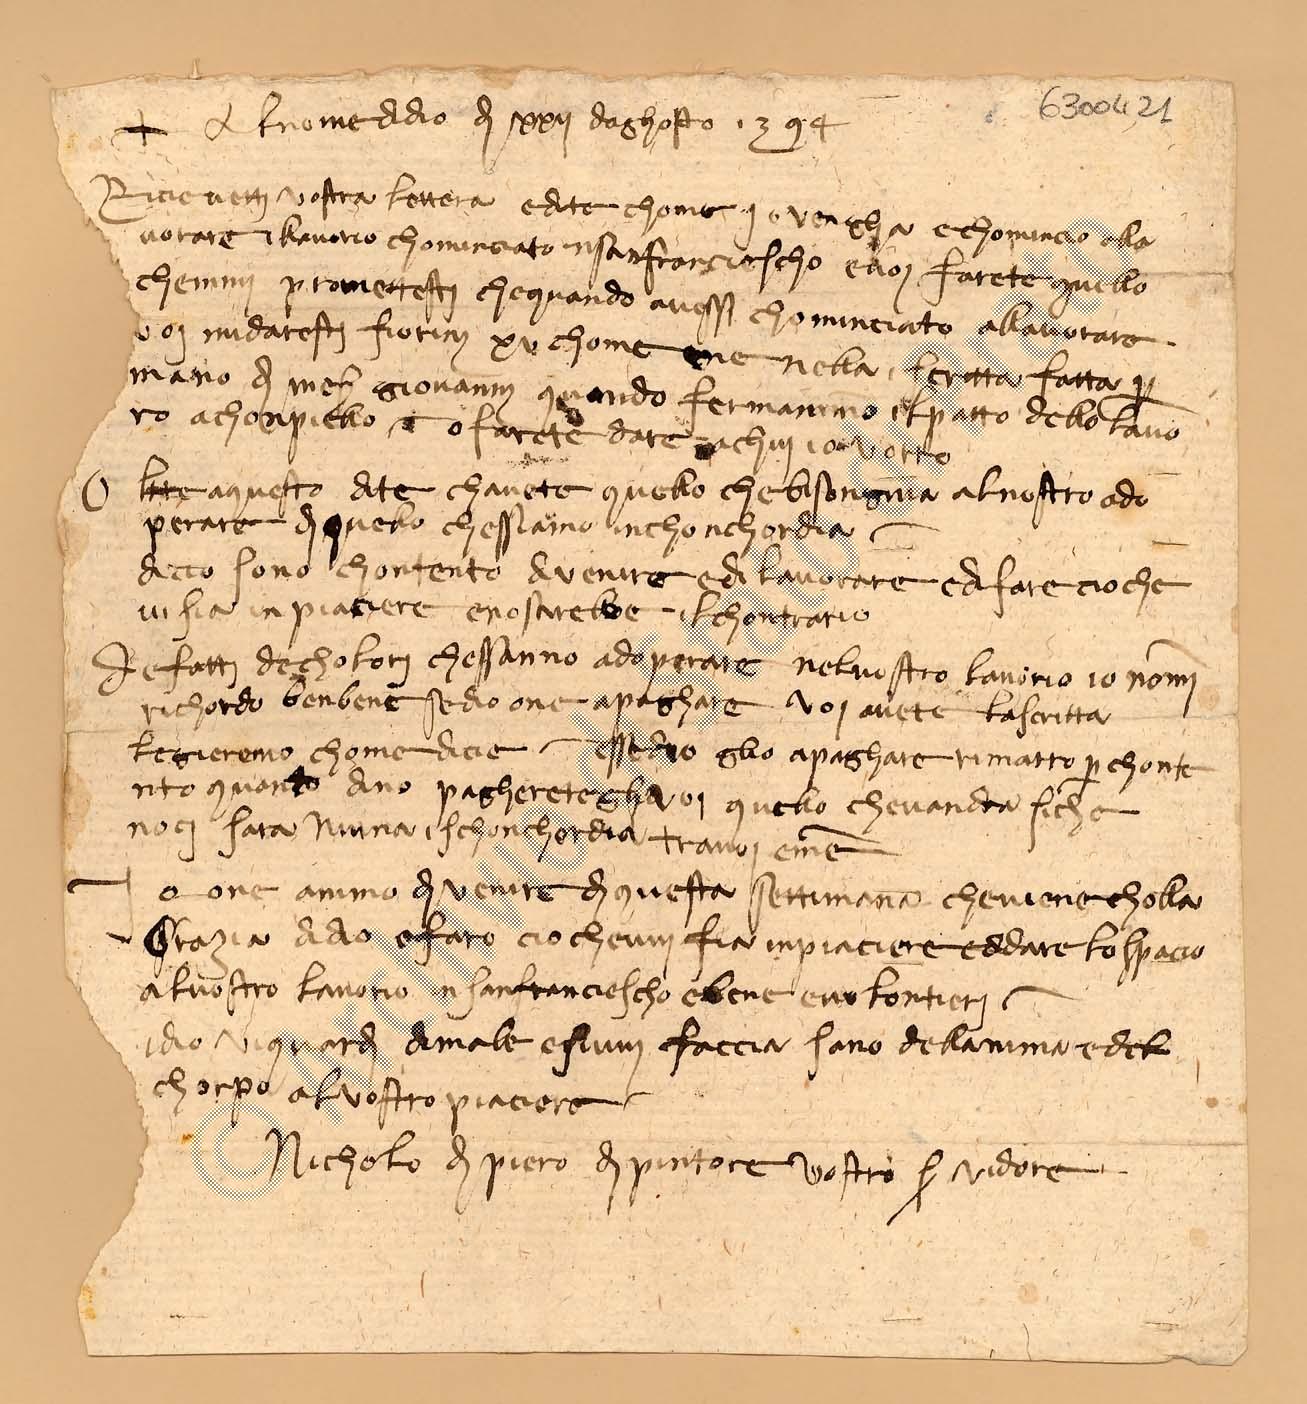 6300421
+ Al nome d dio dj xxij daghosto 1394
Ricievettj vostra lettera e dite chome jo vengha e chominc̣io alla
vorare illavorio chominciato nsanfranciescho e voj farete quello
chemmj promettestj che quando avessi chominciato allavorare
voj midarestj fiorinj xv chome ene nella iscritta fatta p
mano dj mes giovannj quando fermammo il patto dello lavo
ro a chonpiello o farete dare a chui io vorro
O ltre a questo dite chavete quello che bisongnia al vostro ado
perare dj quello chessiamo in chonchordia
dicio sono chontento divenire e di lavorare e di fare cioche
vi sia in piaciere e no sarebbe il chontrario
De fattj de cholorj chessanno adoperare nel vostro lavorio io nommj
richordo ben bene sedio one a paghare voj avete la scritta
legieremo chome dicie essedio glio a paghare rimarro p chonte
nto quanto dino pagheretegli voj quello che vandra siche
nocj sara niuna ischonchordia tra voj e me
I o one animo dj venire dj questa settimana che viene cholla
Grazia didio e faro cio che vvj fia in piaciere e ddare lo spacio
al vostro lavorio in sanfranciescho e bene e volontierj
idio vi guardj di male e sivvj faccia sano dellanima e del
chorpo al vostro piaciere
Nicholo dj piero dj pintore vostro s vidore